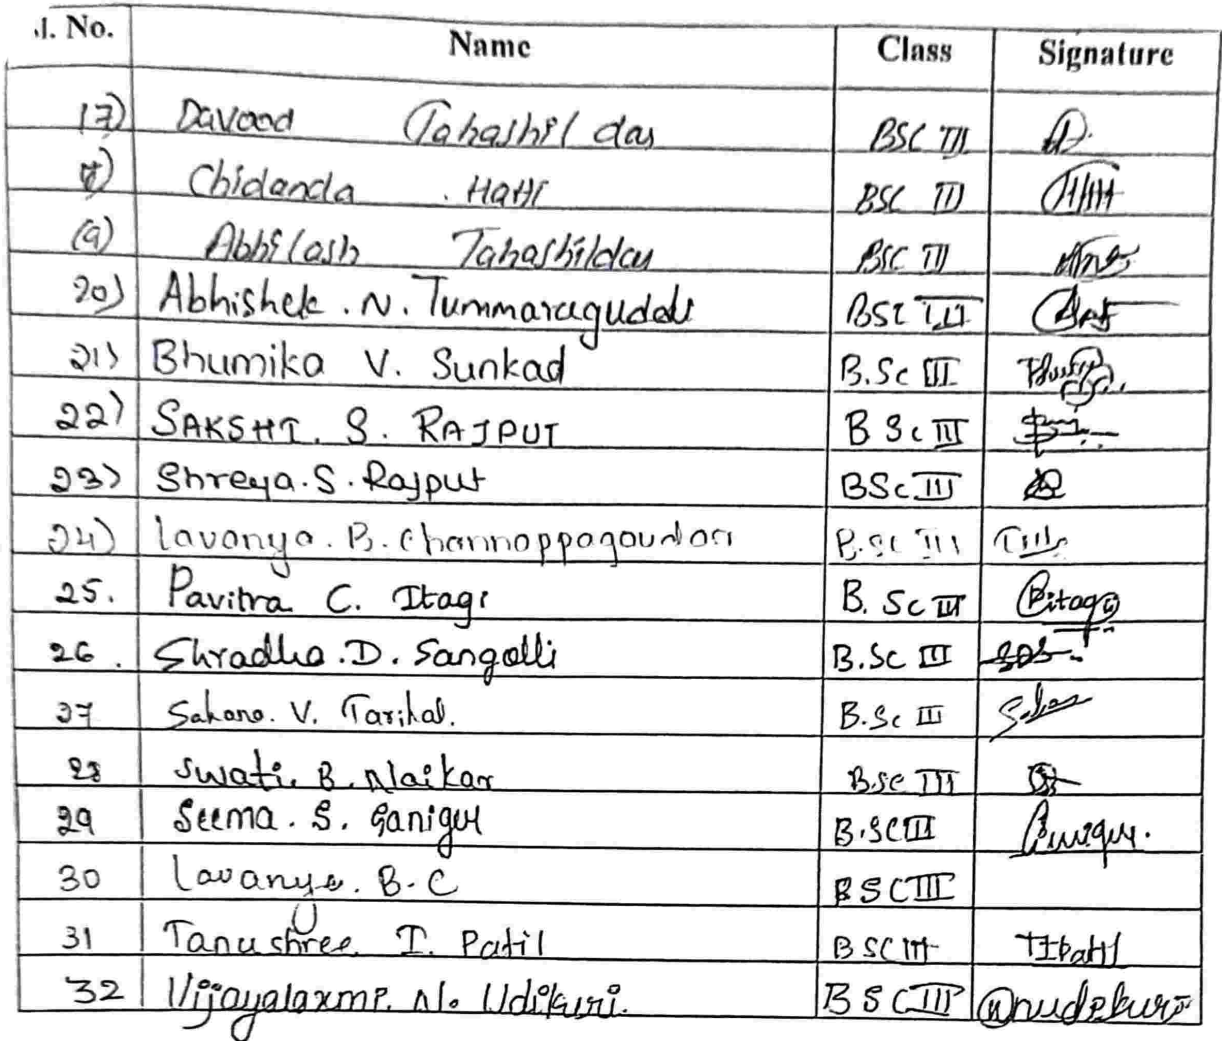 l. No. Name Class Signature
17) Davood Tahashildar BSC III
Chidanda . Hatti BSC III
19) Abhilash Tahashildar BSC III
20) Abhishek . N. Tummaraguddi BSC III
21) Bhumika V. Sunkad B.Sc III
22) SAKSHI. S. RAJPUT B Sc III
23) Shreya. S. Rajput BSc III
24) Lavanya. B. Channappagoudar B.Sc III
25. Pavitra C. Itagi B. Sc III Citagi
26. Shradha .D. Sangolli B.Sc III
27 Sahana. V. Tarihal. B.Sc III
28 Swati. B. Naikar B.Sc III
29 Seema. S. Ganiger B.SC III
30 Lavanya. B. C BSC III
31 Tanushree I. Patil BSC III TIPatil
32 Vijayalaxmi. N. Udikeri. BSC III